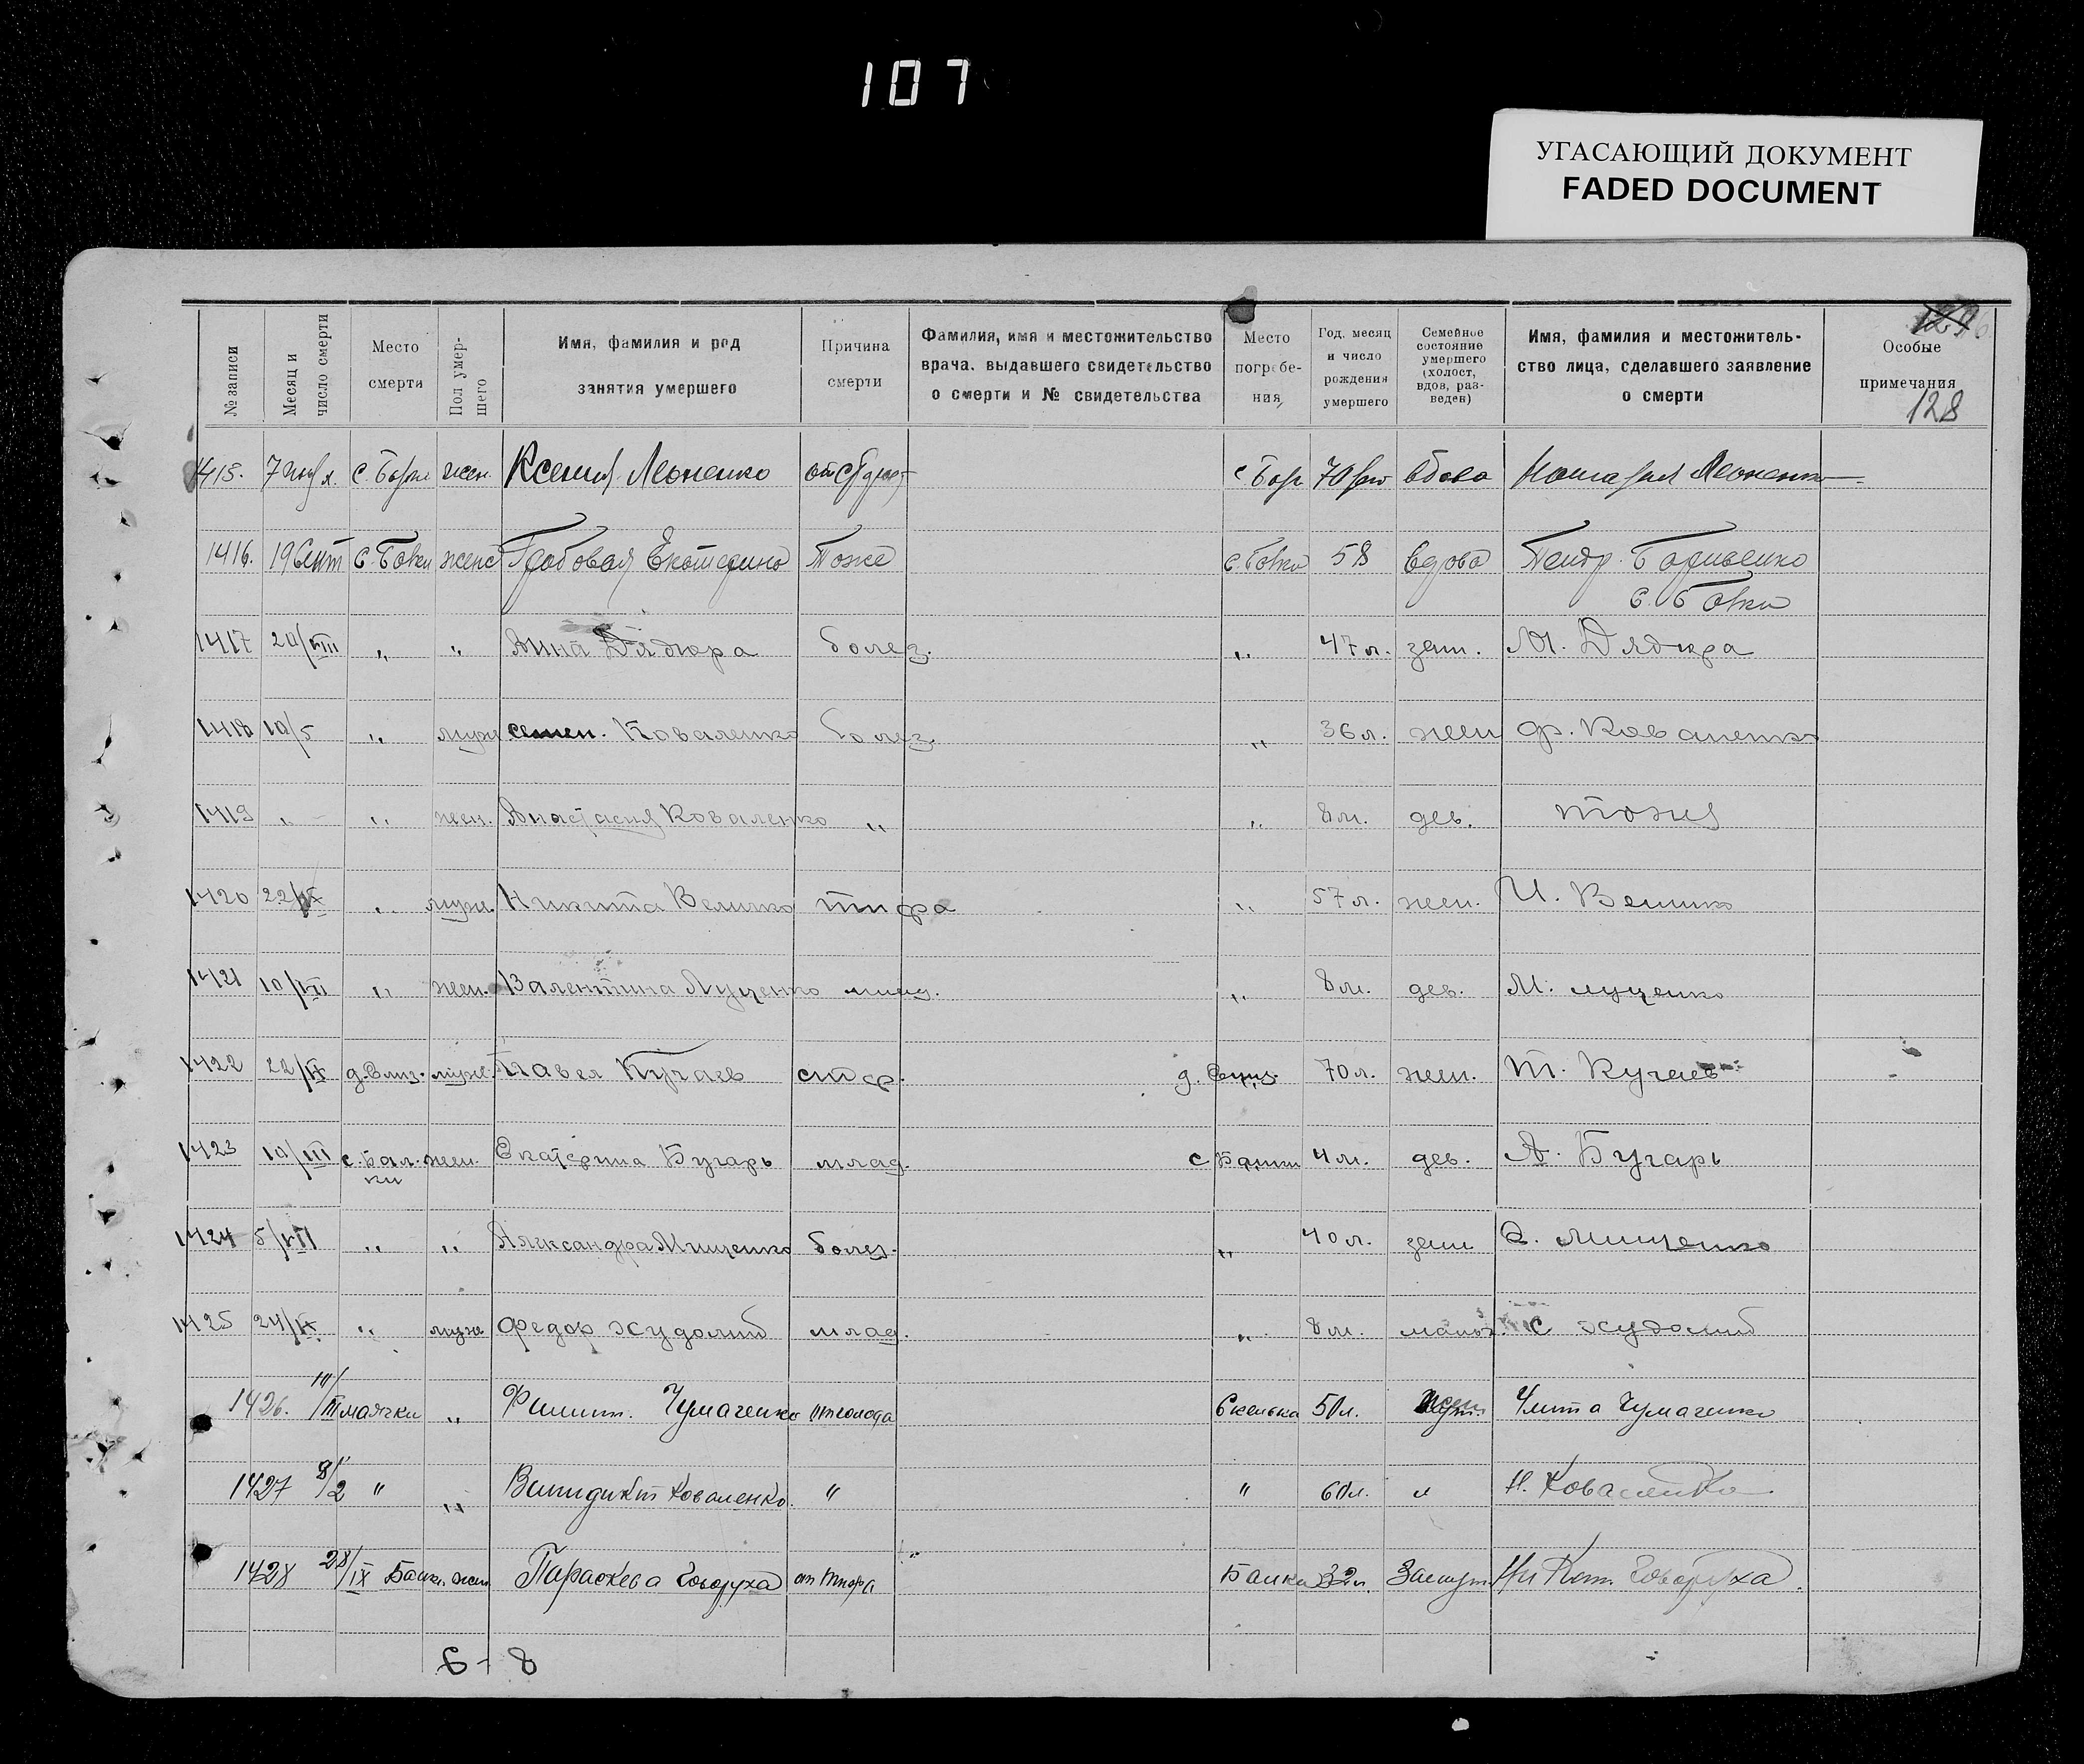 107
УГАСАЮЩИЙ ДОКУМЕНТ
FADED DOCUMENT
128
№ записи | Месяц и число смерти | Место смерти | Пол умершего | Имя, фамилия и род занятия умершего | Причина смерти | Фамилия, имя и местожительство врача, выдавшего свидетельство о смерти и № свидетельства | Место погребения | Год, месяц и число рождения умершего | Семейное состояние умершего (холост, вдов, разведен) | Имя, фамилия и местожительство лица, сделавшего заявление о смерти | Особые примечания
1415. 7 жен. Ксения Леоненко вдова Леоненко
1416. 19 Сент женс Гробовая Екатерина Тоже 58 вдова
1417 20/VIII „ „ Анна Дядюра болез. „ 47 л. зам. М. Дядюра
1418 10/5 „ муж семен. Коваленко болез. „ 36 л. жен ф. Коваленко
1419 „ „ жен. Анастасия Коваленко „ „ 8 м. дев. тоже
1420 22/IX „ муж. Никита Величко тифа „ 57 л. жен. И. Величко
1421 10/VIII „ жен. Валентина Луценко млад. „ 8 м. дев. М. луценко
1422 22/IX муж. Павел Кугаев 70 л. жен. Т. Кугаев
1423 10/III с. Бал. жен. Екатерина Бугарь млад. с Балки 4 м. дев. А. Бугарь
ки
1424 5/VII „ „ Александра Мищенко болез. „ 40 л. зам Мищенко
1425 24/IX „ муж федор худолий млад. „ 8 м. с худолий
1426. 10/III маячки „ Филип. Чумаченко отголода Скелька 50 л. Чумаченко
1427 8/2 " „ Коваленко. " " 60 л. " Н. Коваленко
1428 28/IX Балк. жен Параскева Говоруха от тифа Балки 32 л. Замуж Говоруха.
6 - 8